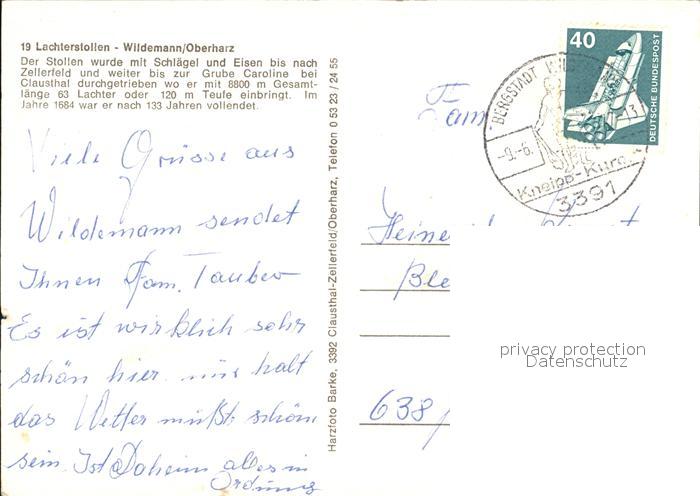 19 Lachterstollen - Wildemann/Oberharz
Der Stollen wurde mit Schlägel und Eisen bis nach
Zellerfeld und weiter bis zur Grube Caroline bei
Clausthal durchgetrieben wo er mit 8800 m Gesamt-
länge 63 Lachter oder 120 m Teufe einbringt. Im
Jahre 1684 war er nach 133 Jahren vollendet.
Viele Grüsse aus
Wildemann sendet
Ihnen Fam. Tauber
Es ist wirklich sehr
schön hier. nur halt
das Wetter müßte schön
sein. Ist Daheim alles in
Ordnung
Harzfoto Barke, 3392 Clausthal-Zellerfeld/Oberharz, Telefon 0 53 23 / 24 55
40
DEUTSCHE BUNDESPOST
BERGSTADT
-9.-6.
-13
Kneipp-Kuro
3391
Fam
Heine
Ble
638
privacy protection
Datenschutz